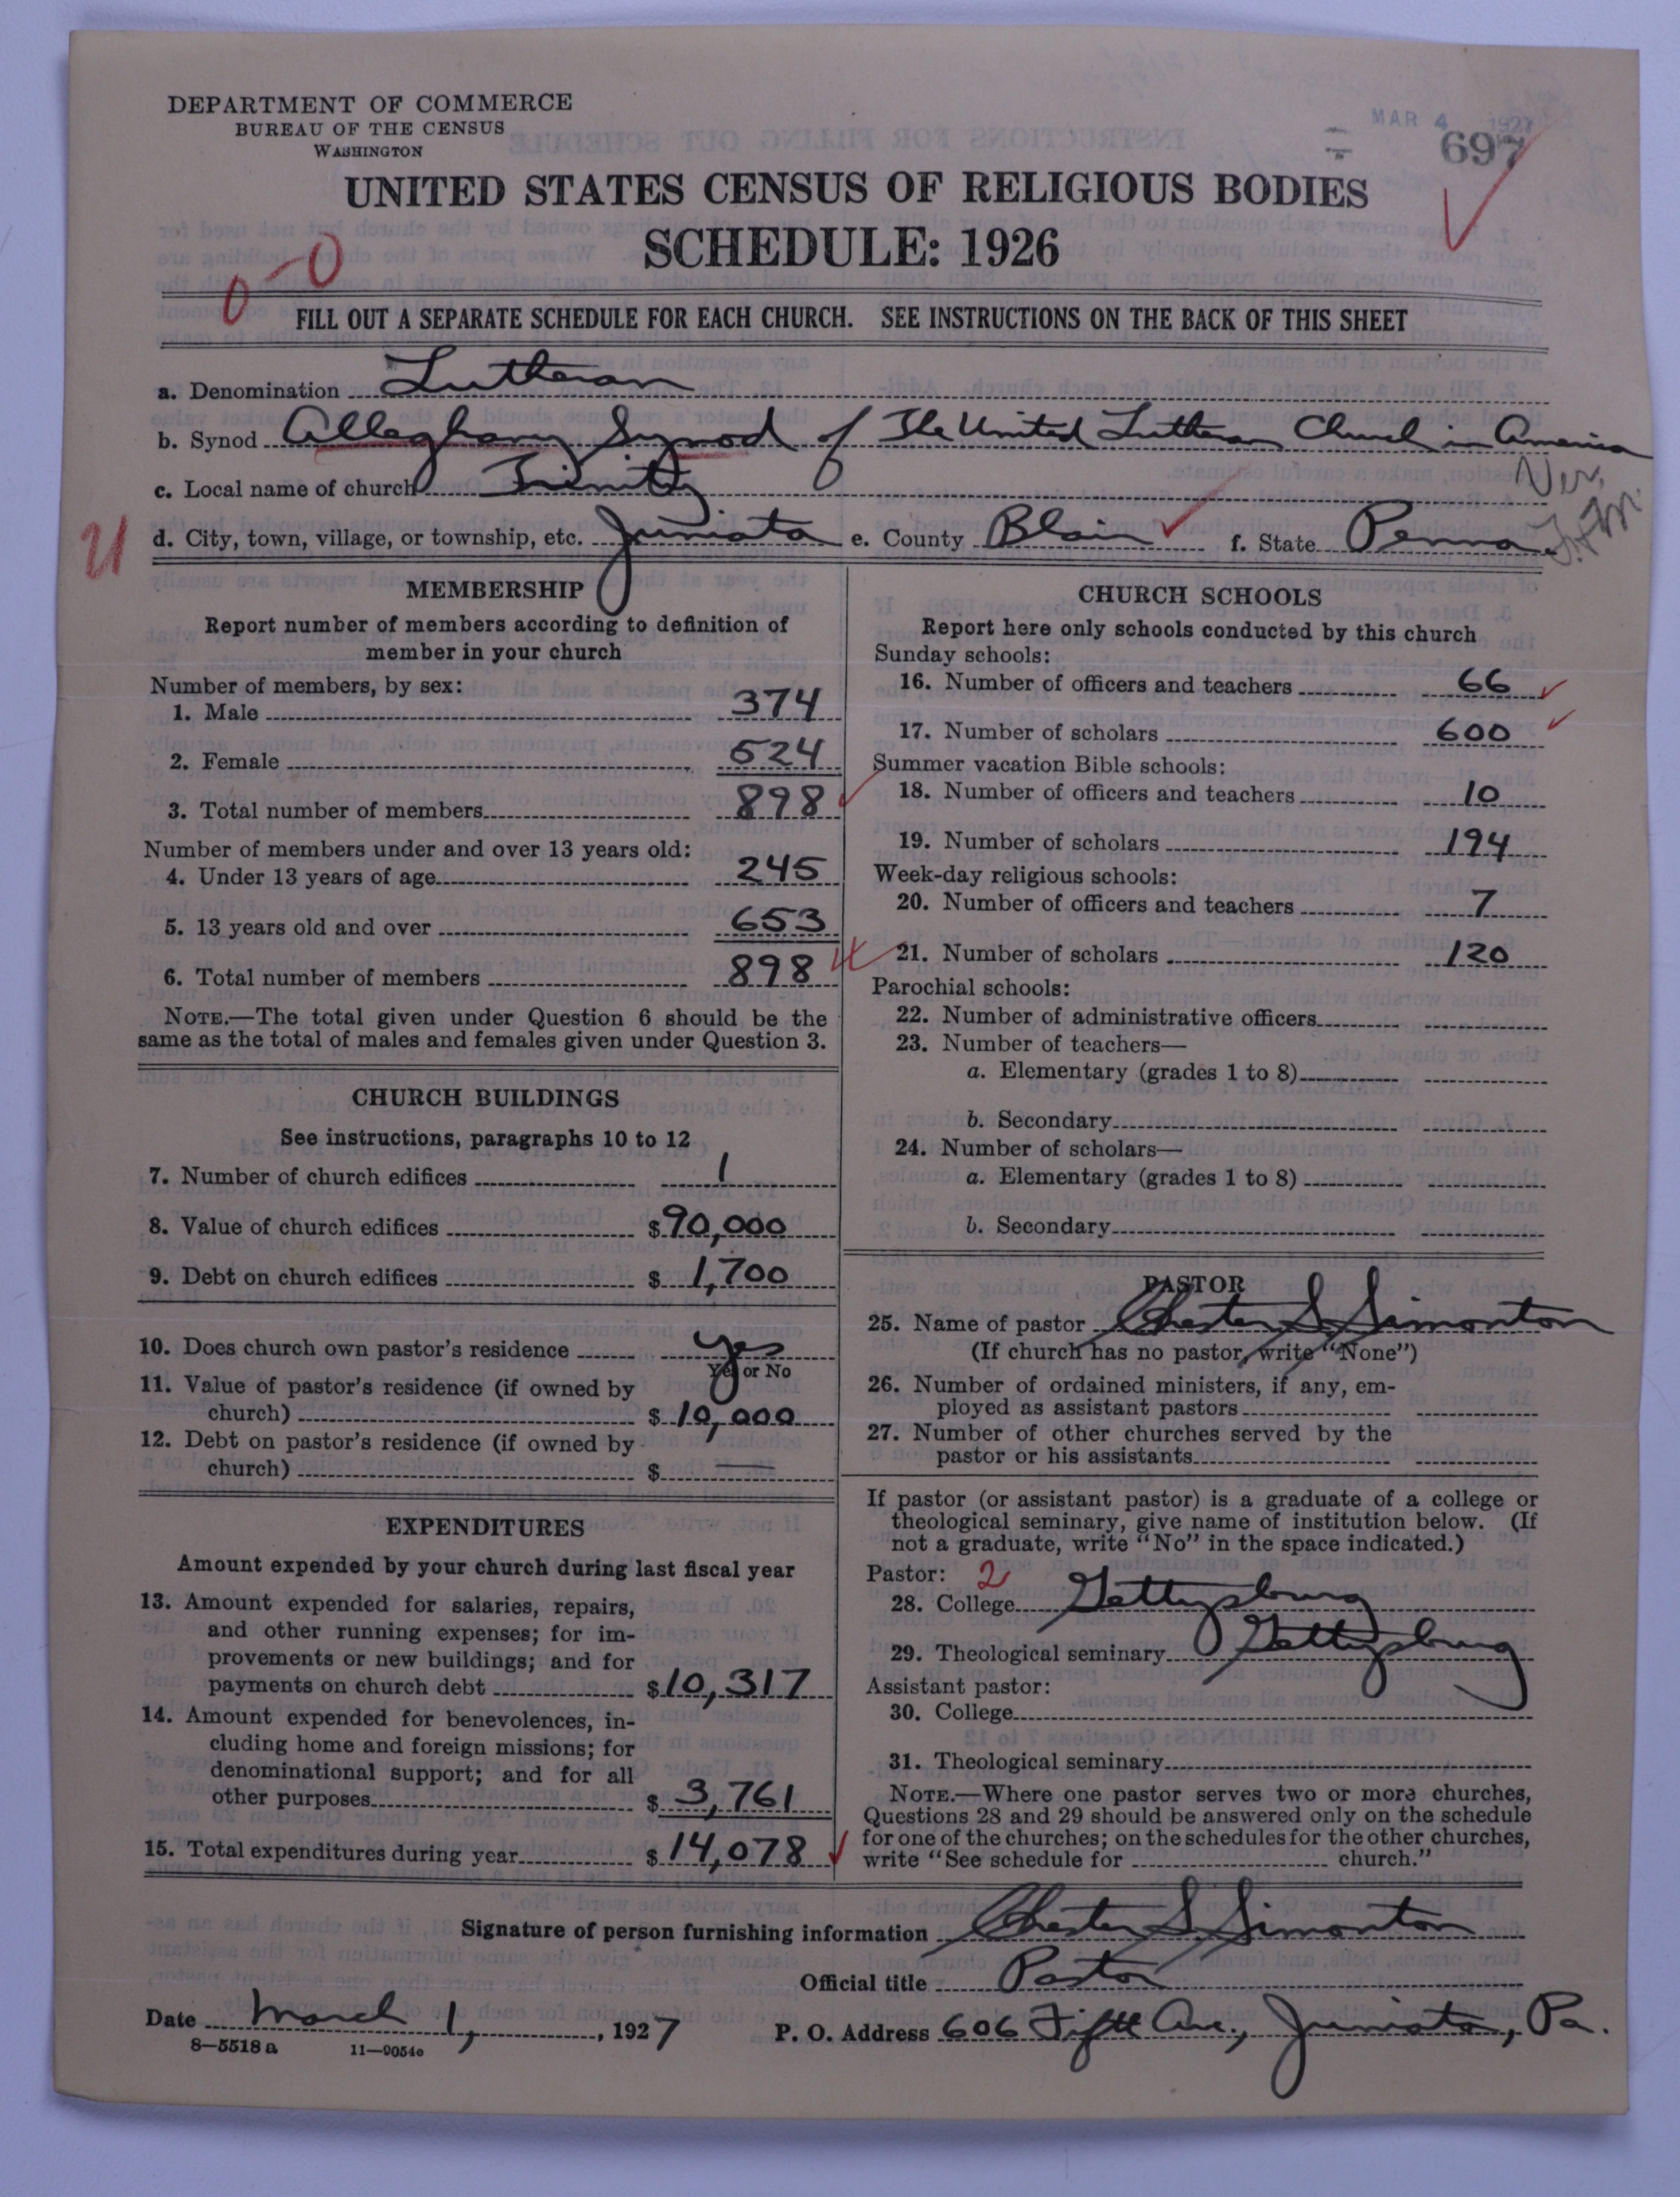 DEPARTMENT OF COMMERCE
BUREAU OF THE CENSUS
WASHINGTON
MAR 4 1927
697
UNITED STATES CENSUS OF RELIGIOUS BODIES
SCHEDULE: 1926
0-0
FILL OUT A SEPARATE SCHEDULE FOR EACH CHURCH. SEE INSTRUCTIONS ON THE BACK OF THIS SHEET
a. Denomination Lutheran
b. Synod Alleghany Synod of The United Lutheran Church in America
c. Local name of church Trinity
Ver.
d. City, town, village, or township, etc. Juniata e. County Blair f. State Penna.
MEMBERSHIP
Report number of members according to definition of
member in your church
Number of members, by sex:
1. Male 374
2. Female 524
3. Total number of members 898
Number of members under and over 13 years old:
4. Under 13 years of age 245
5. 13 years old and over 653
6. Total number of members 898
NOTE.—The total given under Question 6 should be the
same as the total of males and females given under Question 3.
CHURCH BUILDINGS
See instructions, paragraphs 10 to 12
7. Number of church edifices 1
8. Value of church edifices $90,000
9. Debt on church edifices $1,700
10. Does church own pastor's residence yes
Yes or No
11. Value of pastor's residence (if owned by
church) $10,000
12. Debt on pastor's residence (if owned by
church) $ —
EXPENDITURES
Amount expended by your church during last fiscal year
13. Amount expended for salaries, repairs,
and other running expenses; for im-
provements or new buildings; and for
payments on church debt $10,317
14. Amount expended for benevolences, in-
cluding home and foreign missions; for
denominational support; and for all
other purposes $3,761
15. Total expenditures during year $14,078
CHURCH SCHOOLS
Report here only schools conducted by this church
Sunday schools:
16. Number of officers and teachers 66
17. Number of scholars 600
Summer vacation Bible schools:
18. Number of officers and teachers 10
19. Number of scholars 194
Week-day religious schools:
20. Number of officers and teachers 7
21. Number of scholars 120
Parochial schools:
22. Number of administrative officers
23. Number of teachers—
a. Elementary (grades 1 to 8)
b. Secondary
24. Number of scholars—
a. Elementary (grades 1 to 8)
b. Secondary
PASTOR
25. Name of pastor Chester S. Simonton
(If church has no pastor, write "None")
26. Number of ordained ministers, if any, em-
ployed as assistant pastors
27. Number of other churches served by the
pastor or his assistants
If pastor (or assistant pastor) is a graduate of a college or
theological seminary, give name of institution below. (If
not a graduate, write "No" in the space indicated.)
Pastor: 2
28. College Gettysburg
29. Theological seminary Gettysburg
Assistant pastor:
30. College
31. Theological seminary
NOTE.—Where one pastor serves two or more churches,
Questions 28 and 29 should be answered only on the schedule
for one of the churches; on the schedules for the other churches,
write "See schedule for church."
Signature of person furnishing information Chester S. Simonton
Official title Pastor
Date March 1, 1927 P. O. Address 606 Fifth Ave., Juniata, Pa.
8—5518a 11—9054c